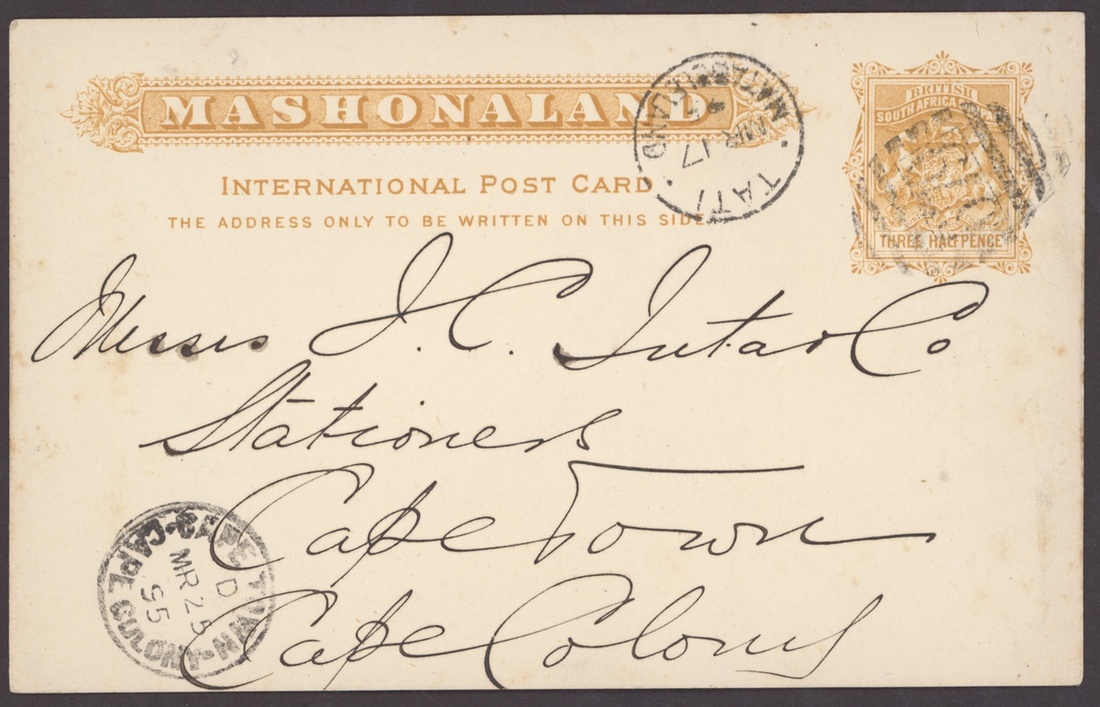 MASHONALAND
INTERNATIONAL POST CARD
THE ADDRESS ONLY TO BE WRITTEN ON THIS SIDE
BRITISH
SOUTH AFRICA COMPANY
THREE HALFPENCE
TATI
MR 17
Messrs J. C. Juta & Co
Stationers
Cape Town
Cape Colony
CAPE TOWN
D
MR 25
95
CAPE COLONY